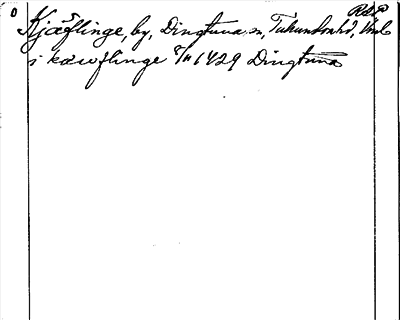 RAP
0 Kjäflinge, by, Dingtuna sn, Tuhundra hd, Vml
i kæwflinge 1429 Dingtuna